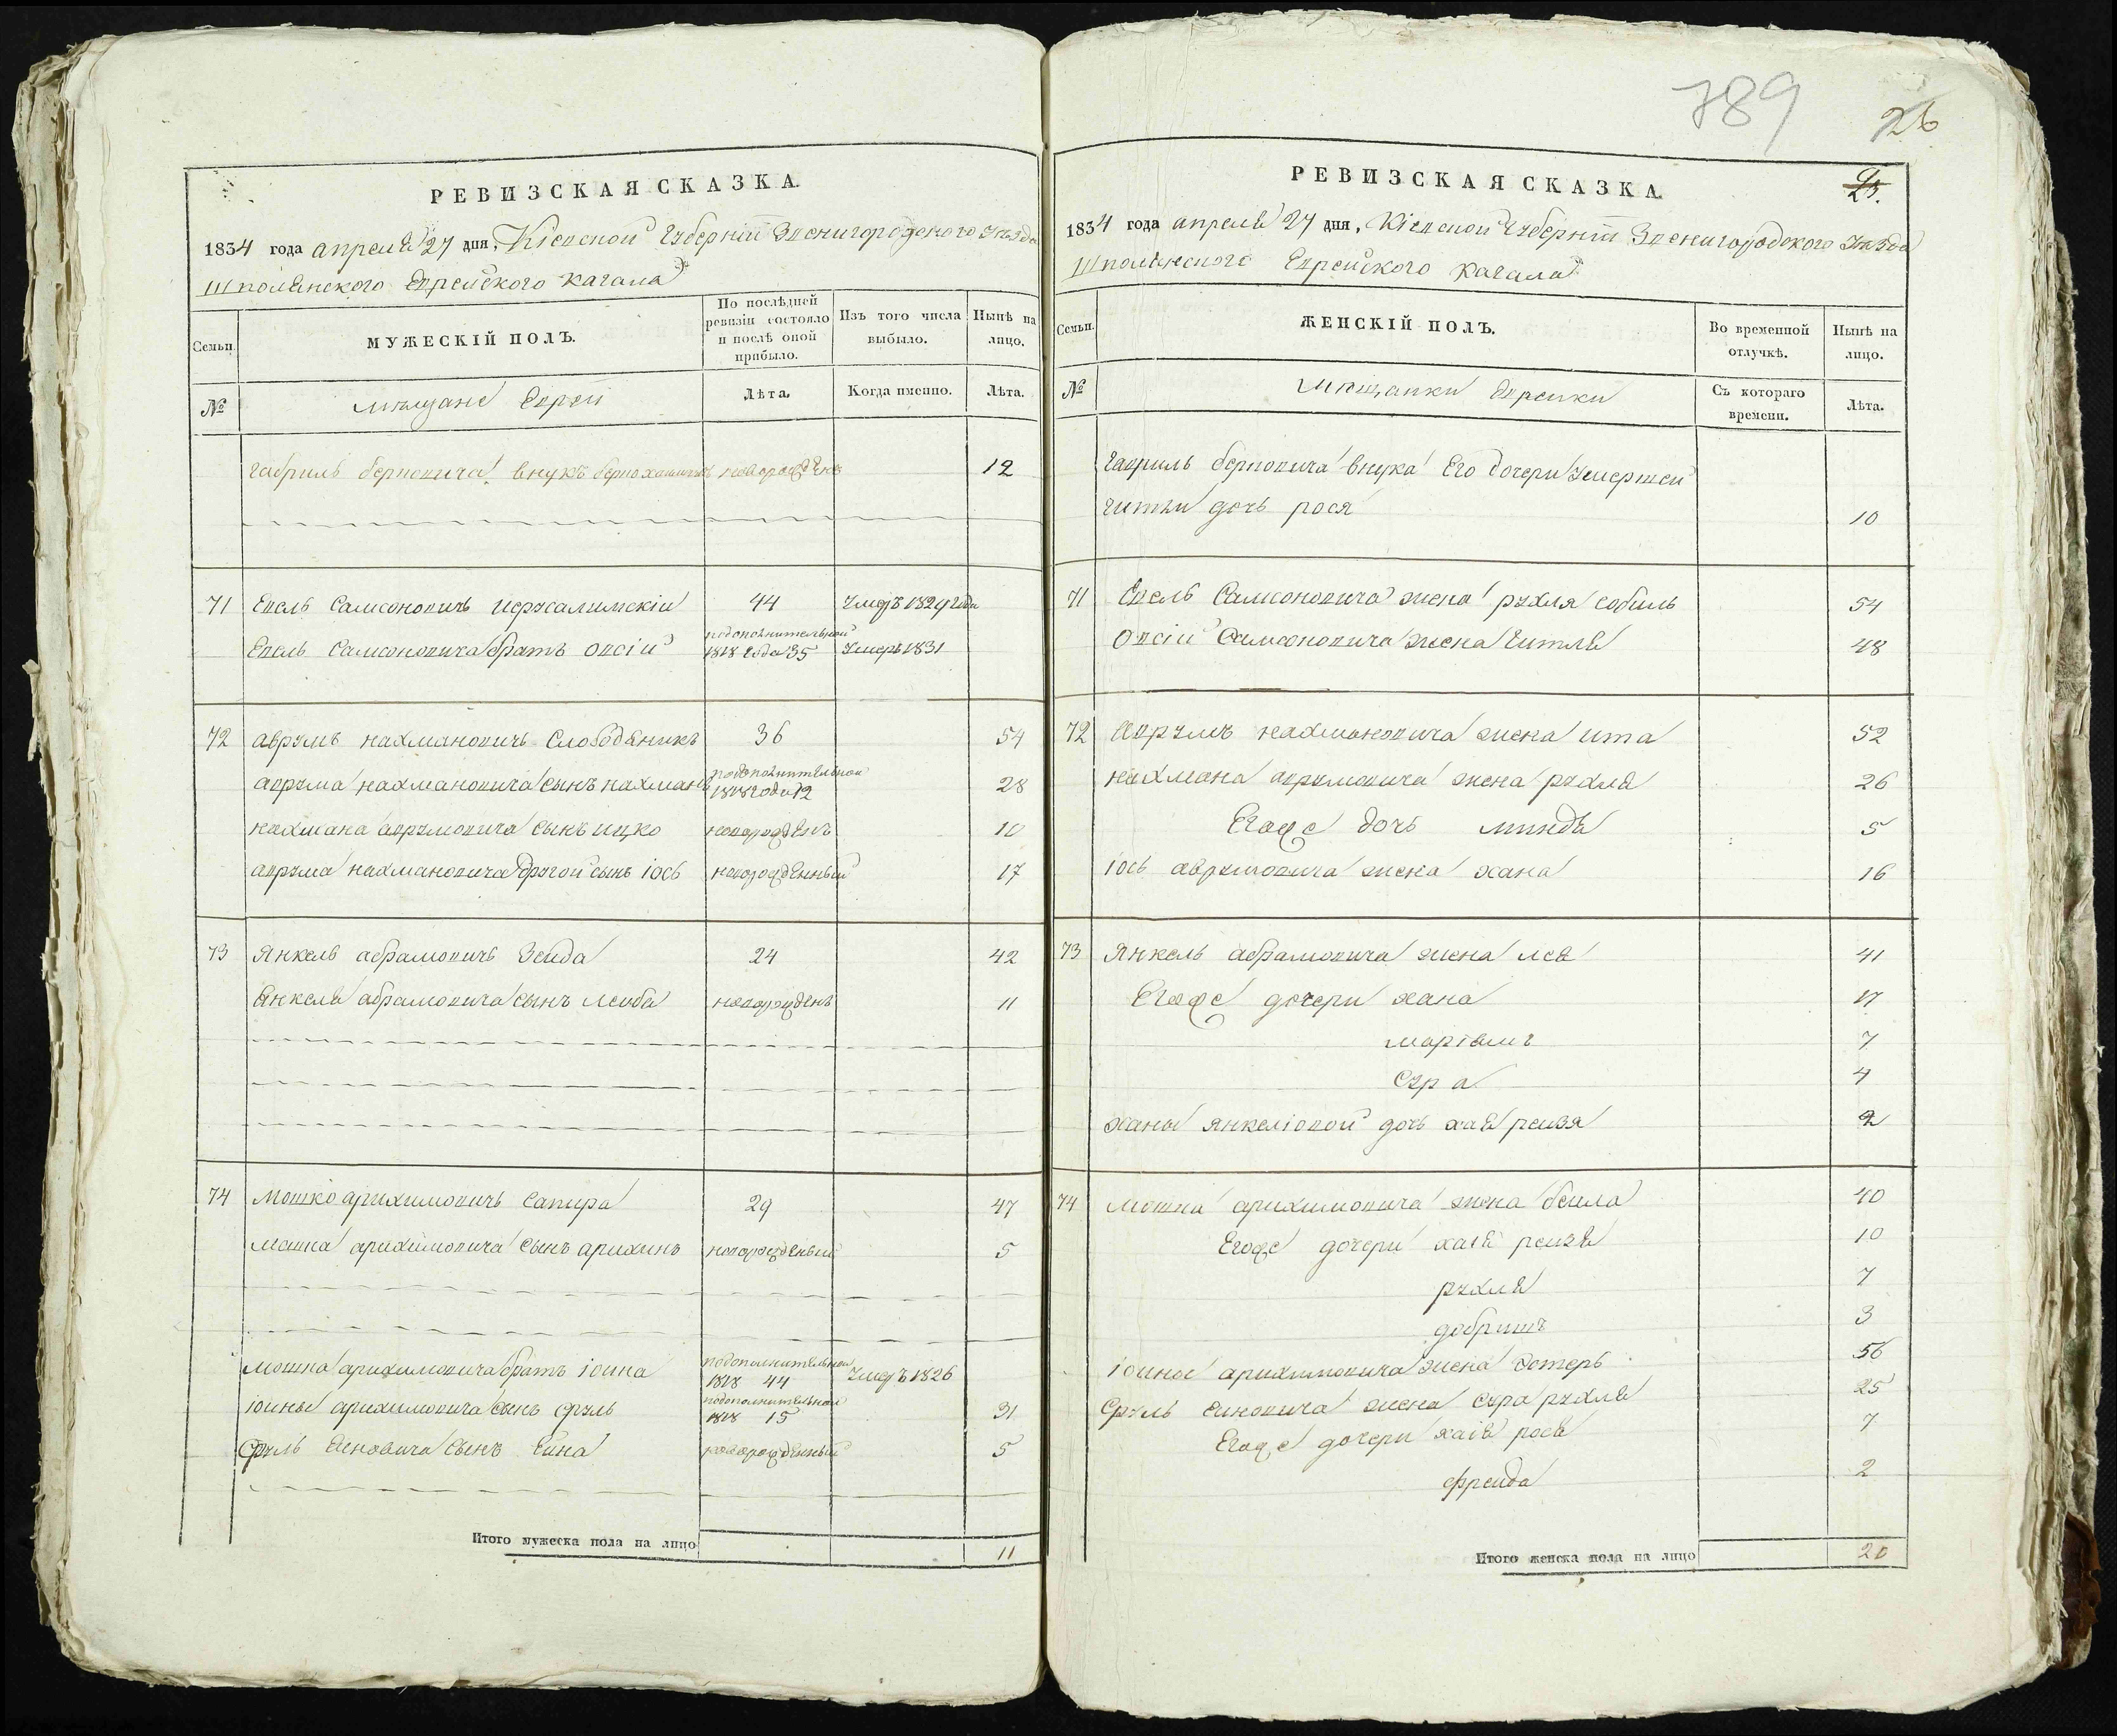 РЕВИЗСКАЯ СКАЗКА.
1834 года апреля 27 дня, Кіевской Губерніи Звенигородского Уѣзда
Шполянского Еврейского Кагала
Семьи.
МУЖЕСКІЙ ПОЛЪ.
По послѣдней ревизіи состояло и послѣ оной прибыло.
Изъ того числа выбыло.
Нынѣ на лицо.
№
мѣщане Евреи
Лѣта.
Когда именно.
Лѣта.
Габриль берковича внукъ новорожденъ 12
71 Евель Самсоновичъ иерусалимскіи 44 Умеръ 1829 года
Евель Самсоновича братъ овсіи подополнительной 1818 года 35 Умеръ 1831
72 аврумъ нахмановичъ Слободяникъ 36 54
аврума нахмановича сынъ нахманъ подополнительной 1818 года 12 28
нахмана аврумовича сынъ ицко новорожденъ 10
аврума нахмановича другой сынъ іось новорожденный 17
73 Янкель абрамовичъ Зейда 24 42
Янкеля абрамовича сынъ лейба новорожденъ 11
74 Мошко арихимовичъ Сапира 29 47
мошка арихимовича сынъ арихимъ новорожденый 5
мошка арихимовича братъ іоина подополнительной 1818 44 Умеръ 1826
іоины арихимовича сынъ сруль подополнительной 1818 15 31
Сруль Еиновича сынъ Еина новорожденный 5
Итого мужеска пола на лицо 11
789
26
25.
РЕВИЗСКАЯ СКАЗКА.
1834 года апреля 27 дня, Кіевской Губерніи Звенигородского Уѣзда
Шполянского Еврейского Кагала
Семьи.
ЖЕНСКІЙ ПОЛЪ.
Во временной отлучкѣ.
Нынѣ на лицо.
№
мещанки Еврейки
Съ котораго времени.
Лѣта.
Гавриль берковича внука Его дочери умершей
гитли дочь рося 10
71 Евель Самсоновича жена рухля собиль 54
Овсіи Самсоновича жена Гитля 48
72 Аврумъ нахмановича жена ита 52
нахмана аврумовича жена рухля 26
Егоже дочь миндя 5
іось аврумовича жена хана 16
73 Янкель абрамовича жена лея 41
Егоже дочери хана 17
маріямъ 7
Сура 4
Ханы янкеліовой дочь хая рейзя 2
74 мошка арихимовича жена бейла 40
Егоже дочери хаія рейзя 10
рухля 7
добришъ 3
іоины арихимовича жена Эстеръ 56
Сруль еиновича жена сура рухля 25
Егоже дочери хаія рося 7
фрейда 2
Итого женска пола на лицо 20